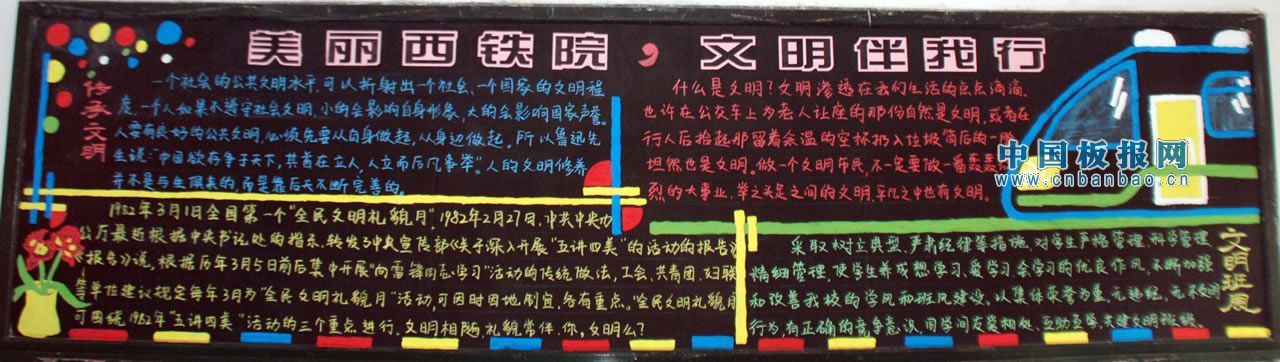 美丽西铁院,文明伴我行
传承文明
一个社会的公共文明水平,可以折射出一个社会、一个国家的文明程
度,一个人如果不遵守社会文明,小的会影响自身形象,大的会影响国家声誉。
人要有良好的公共文明,必须先要从自身做起,从身边做起。所以鲁迅先
生说:"中国欲存争于天下,其首在立人,人立而后凡事举。"人的文明修养
并不是与生俱来的,而是靠后天不断完善的。
什么是文明?文明渗透在我们生活的点点滴滴,
也许在公交车上为老人让座的那份自然是文明,或者在
行人后拾起那留着余温的空杯扔入垃圾筒后的一脸
坦然也是文明。做一个文明市民,不一定要做一番轰轰
烈的大事业,举之头足之间的文明,平凡之中也有文明。
中国板报网
www.cnbanbao.cn
1982年3月1日全国第一个"全民文明礼貌月",1982年2月27日,中共中央办
公厅最近根据中央书记处的指示,转发了中央宣传部《关于深入开展"五讲四美"的活动的报告》
《报告》说,根据历年3月5日前后集中开展"向雷锋同志学习"活动的传统做法,工会、共青团、妇联
等单位建议规定每年3月为"全民文明礼貌月"活动,可因时因地制宜,各有重点。"全民文明礼貌月
可围绕1982年"五讲四美"活动的三个重点进行,文明相随礼貌常伴,你,文明么?
文明班风
采取树立典型、严肃纪律等措施,对学生严格管理,科学管理,
精细管理,使学生养成想学习、爱学习、会学习的优良作风,不断加强
和改善我校的学风和班风建设。以集体荣誉为重,无违纪,无不文明
行为,有正确的竞争意识,同学间友爱相处、互助互学,共建文明班级。